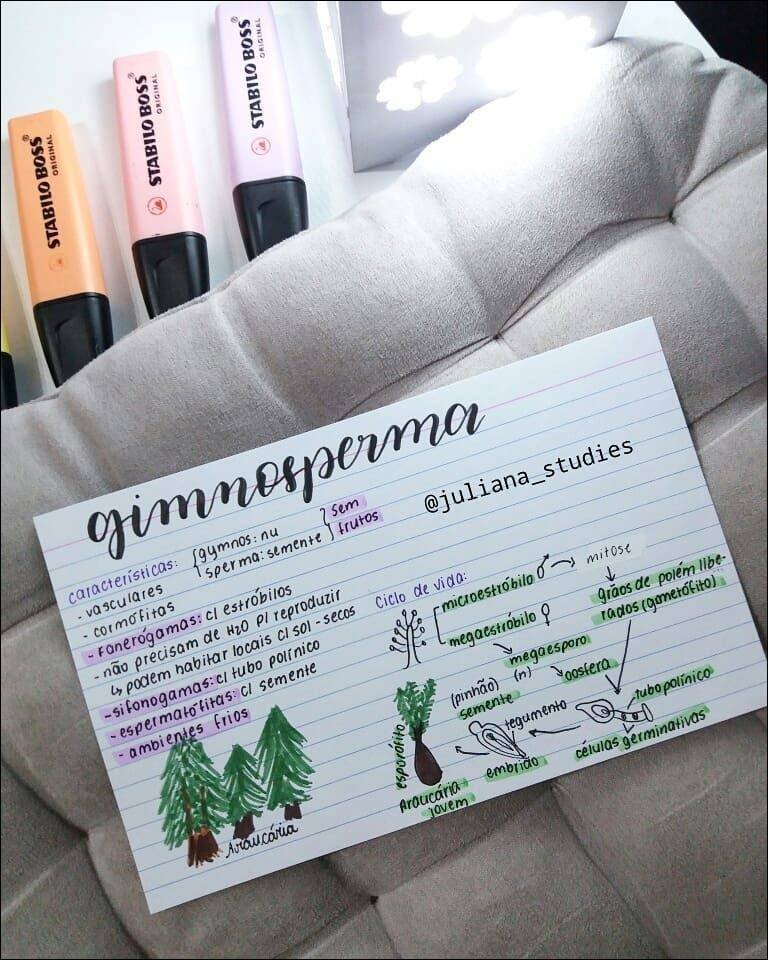 STABILO BOSS®
ORIGINAL
STABILO BOSS®
ORIGINAL
STABILO BOSS®
ORIGINAL
gimnosperma
@juliana_studies
características: { gymnos: nu
sperma: semente } sem
frutos
- vasculares
- cormófitas
- fanerógamas: c/ estróbilos
- não precisam de H2O p/ reproduzir
↳ podem habitar locais c/ sol - secos
- sifonogamas: c/ tubo polínico
- espermatófitas: c/ semente
- ambientes frios
Araucária
Ciclo de vida:
microestróbilo ♂ → mitose
grãos de polém libe-
rados (gametófito)
megaestróbilo ♀
megaesporo
(n)
oosfera
tubo polínico
células germinativas
(pinhão)
semente
tegumento
embrião
esporófito
Araucária
jovem